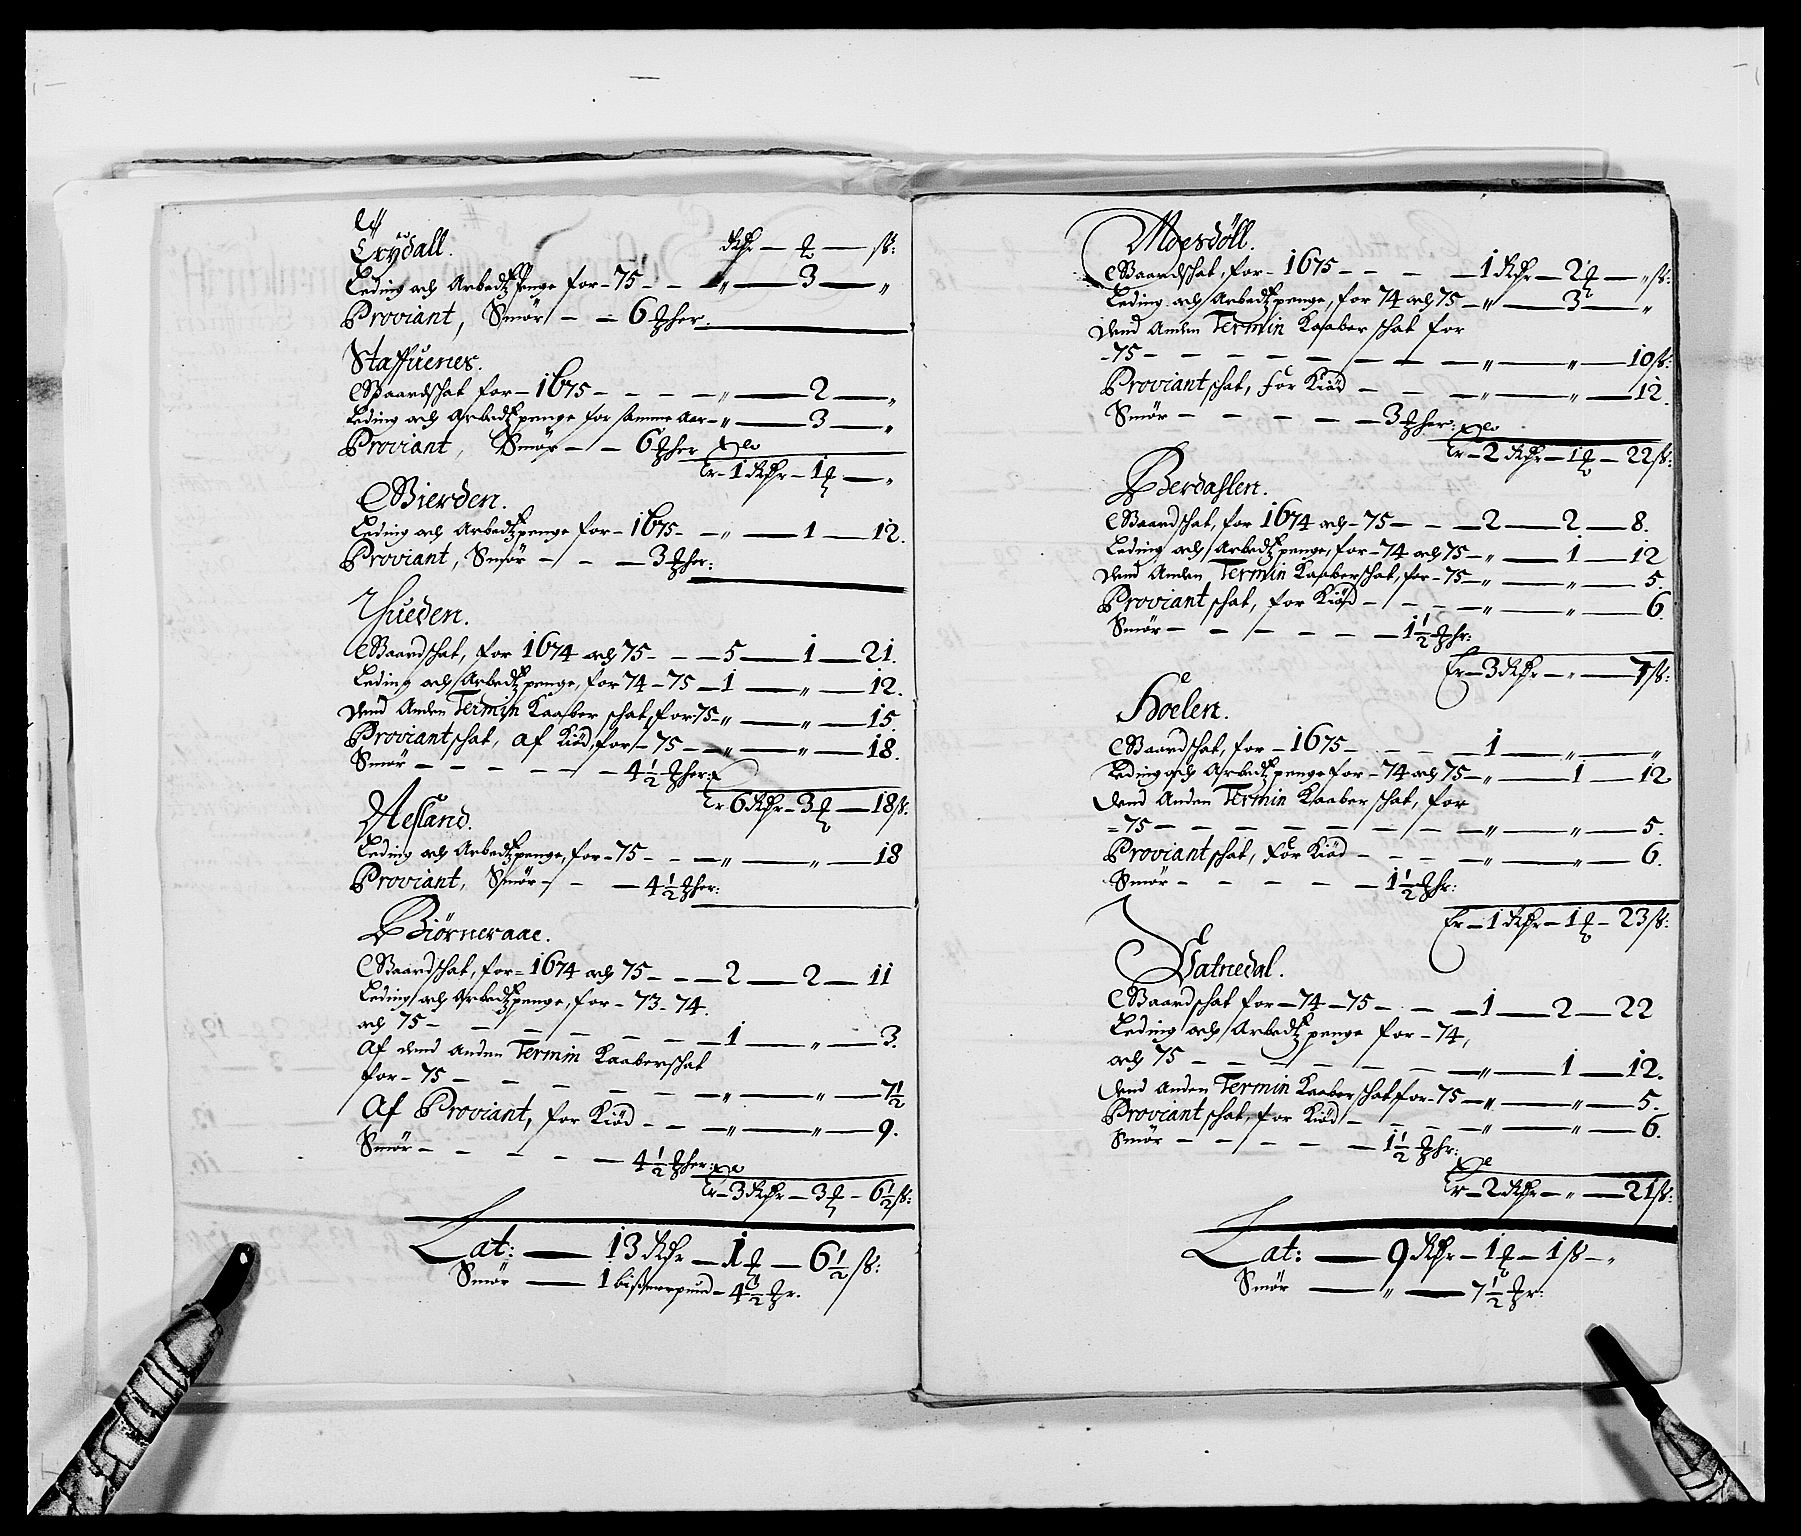 Exydall. Rdr — ₰ — ß:
Leding och Arbedtzpenge for – 75 – – „ — 3 — „
Proviant, Smör – – 6 ₰her:
Staffuenes.
Baardschat for – 1675 – – – – „ — 2 — „
Leding och Arbedtzpenge for samme Aar – „ — 3 — „
Proviant, Smör – – 6 ₰her
Er – 1 Rdr – 1 ₰ — „
Bierden.
Leding och Arbedtzpenge for – 1675 – – „ — 1 — 12.
Proviant, Smör – – – 3 ₰her:
Thueden.
Baardschat, for 1674 och 75 – – – 5 — 1 — 21.
Leding och Arbedtzpenge, for 74 – 75 – 1 — „ — 12.
Dend Anden Termin Kaaberschat, for 75 – „ — „ — 15
Proviantschat, af Kiöd, for – 75 – – „ — „ — 18.
Smör – – – – – – 4 1/2 ₰her:
Er 6 Rdr – 3 ₰ — 18 ß.
Aesland.
Leding och Arbedtzpenge, for – 75 – – – „ — „ — 18
Proviant, Smör – – – 4 1/2 ₰her:
Biörneraae.
Baardschat, for – 1674 och 75 – – – 2 — 2 — 11
Leding och Arbedtzpenge, for – 73 – 74.
och 75 – – – – – – 1 — „ — 3.
Af dend Anden Termin Kaaberschat
for – 75 – – – – – – „ — „ — 7 1/2
Af Proviant, for Kiöd – – – „ — „ — 9.
Smör – – – – – 4 1/2 ₰her:
Er – 3 Rdr – 3 ₰ – 6 1/2 ß:
Lat: — 13 Rdr – 1 ₰ – 6 1/2 ß:
Smör — 1 bißmerpund – 4 1/2 ₰r.
Moesdöll.
Baardschat, for – 1675 – – – – 1 Rdr – 2 ₰ – „ ß:
Leding och Arbedtzpenge, for 74 och 75 – „ — 3 — „
Dend Anden Termin Kaaberschat for
– 75 – – – – – – – – „ — „ — 10 ß:
Proviantschat, for Kiöd – – – „ — „ — 12.
Smör – – – – – 3 ₰her:
Er – 2 Rdr – 1 ₰ – 22 ß:
Berdahlen.
Baardschat, for 1674 och – 75 – – – 2 — 2 — 8.
Leding och Arbedtzpenge, for – 74 och 75 – „ — 1 — 12
Dend Anden Termin Kaaberschat, for – 75 – „ — „ — 5.
Proviantschat, for Kiöd – – – – „ — „ — 6
Smör – – – – – – 1 1/2 ₰hr:
Er – 3 Rdr – „ — 7 ß:
Hoelen.
Baardschat, for – 1675 – – – – 1 — „ — „
Leding och Arbedtzpenge for – 74 och 75 – „ — 1 — 12
Dend Anden Termin Kaaberschat, for
= 75 – – – – – – – – „ — „ — 5.
Proviantschat, for Kiöd – – – – „ — „ — 6.
Smör – – – – – 1 1/2 ₰hr:
Er – 1 Rdr – 1 ₰ – 23 ß:
Vatnedal.
Baardschat for – 74 – 75 – – – 1 — 2 — 22
Leding och Arbedtzpenge for – 74,
och 75 – – – – – – – „ — 1 — 12.
Dend Anden Termin Kaaberschat for – 75 – „ — „ — 5.
Proviantschat, for Kiöd – – – – „ — „ — 6.
Smör – – – – – 1 1/2 ₰hr:
Er – 2 Rdr – „ — 21 ß:
Lat: — 9 Rdr – 1 ₰ – 1 ß – „
Smör — „ — 7 1/2 ₰r: